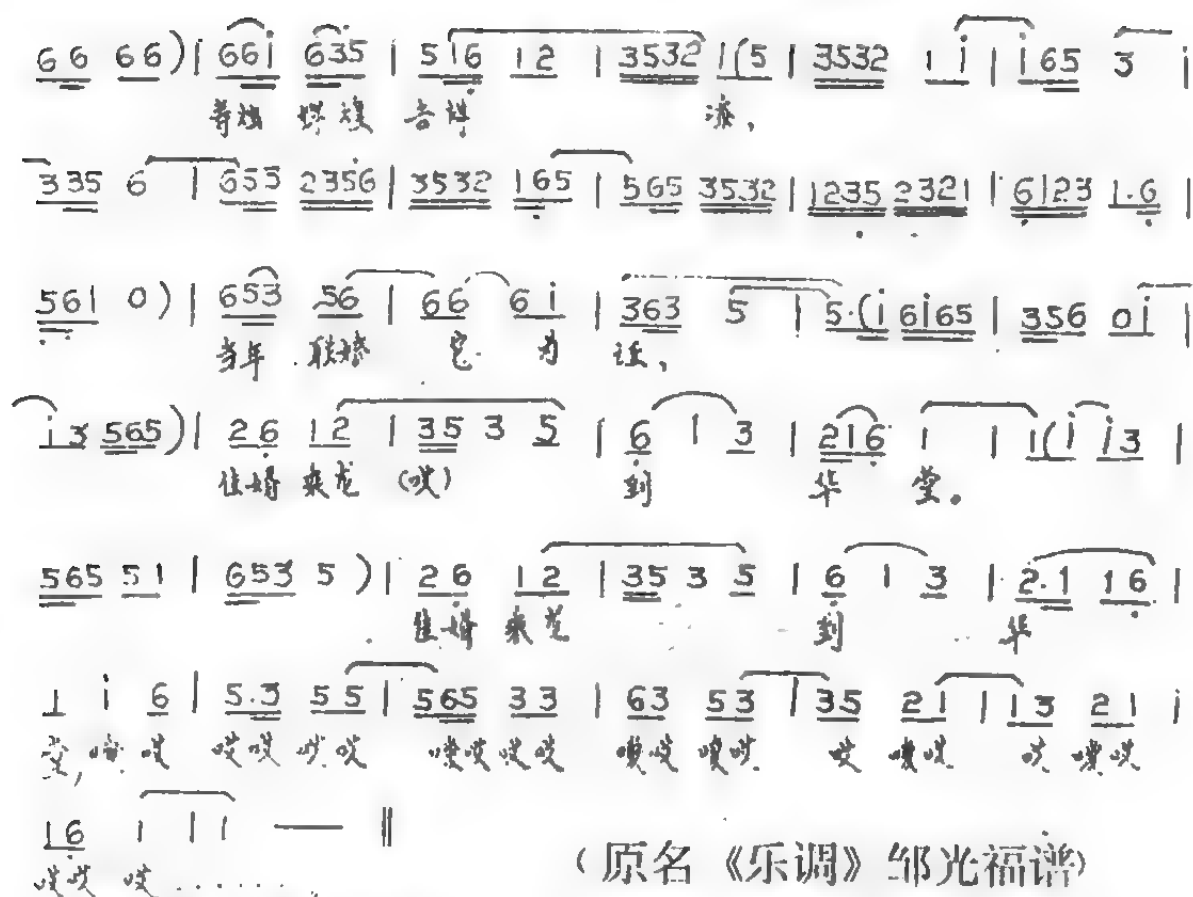 66 66)|66i 635|516 12|3532 1(5|3532 1i|i65 3|
告
335 6|655 2356|3532 165|565 3532|1235 2321|6123 1·6|
561 0)|653 56|66 6i|363 5|5·(i 6i65|356 0i|
当年 联婚 它 为
i3 565)|26 12|35 3 5|6 1 3|216 1|1(i i3|
佳婚 来龙 (哎) 到 华 堂。
565 51|653 5)|26 12|35 3 5|6 1 3|2·1 16|
佳婚 来龙 到 华
1 i 6|5·3 55|565 33|63 53|35 21|13 21|
堂, 哎 哎哎 哎哎 噢哎哎哎 噢哎 噢哎 哎 噢哎 哎 噢哎
16 1|1 1 —‖
哎哎 哎……
(原名《乐调》邹光福谱)